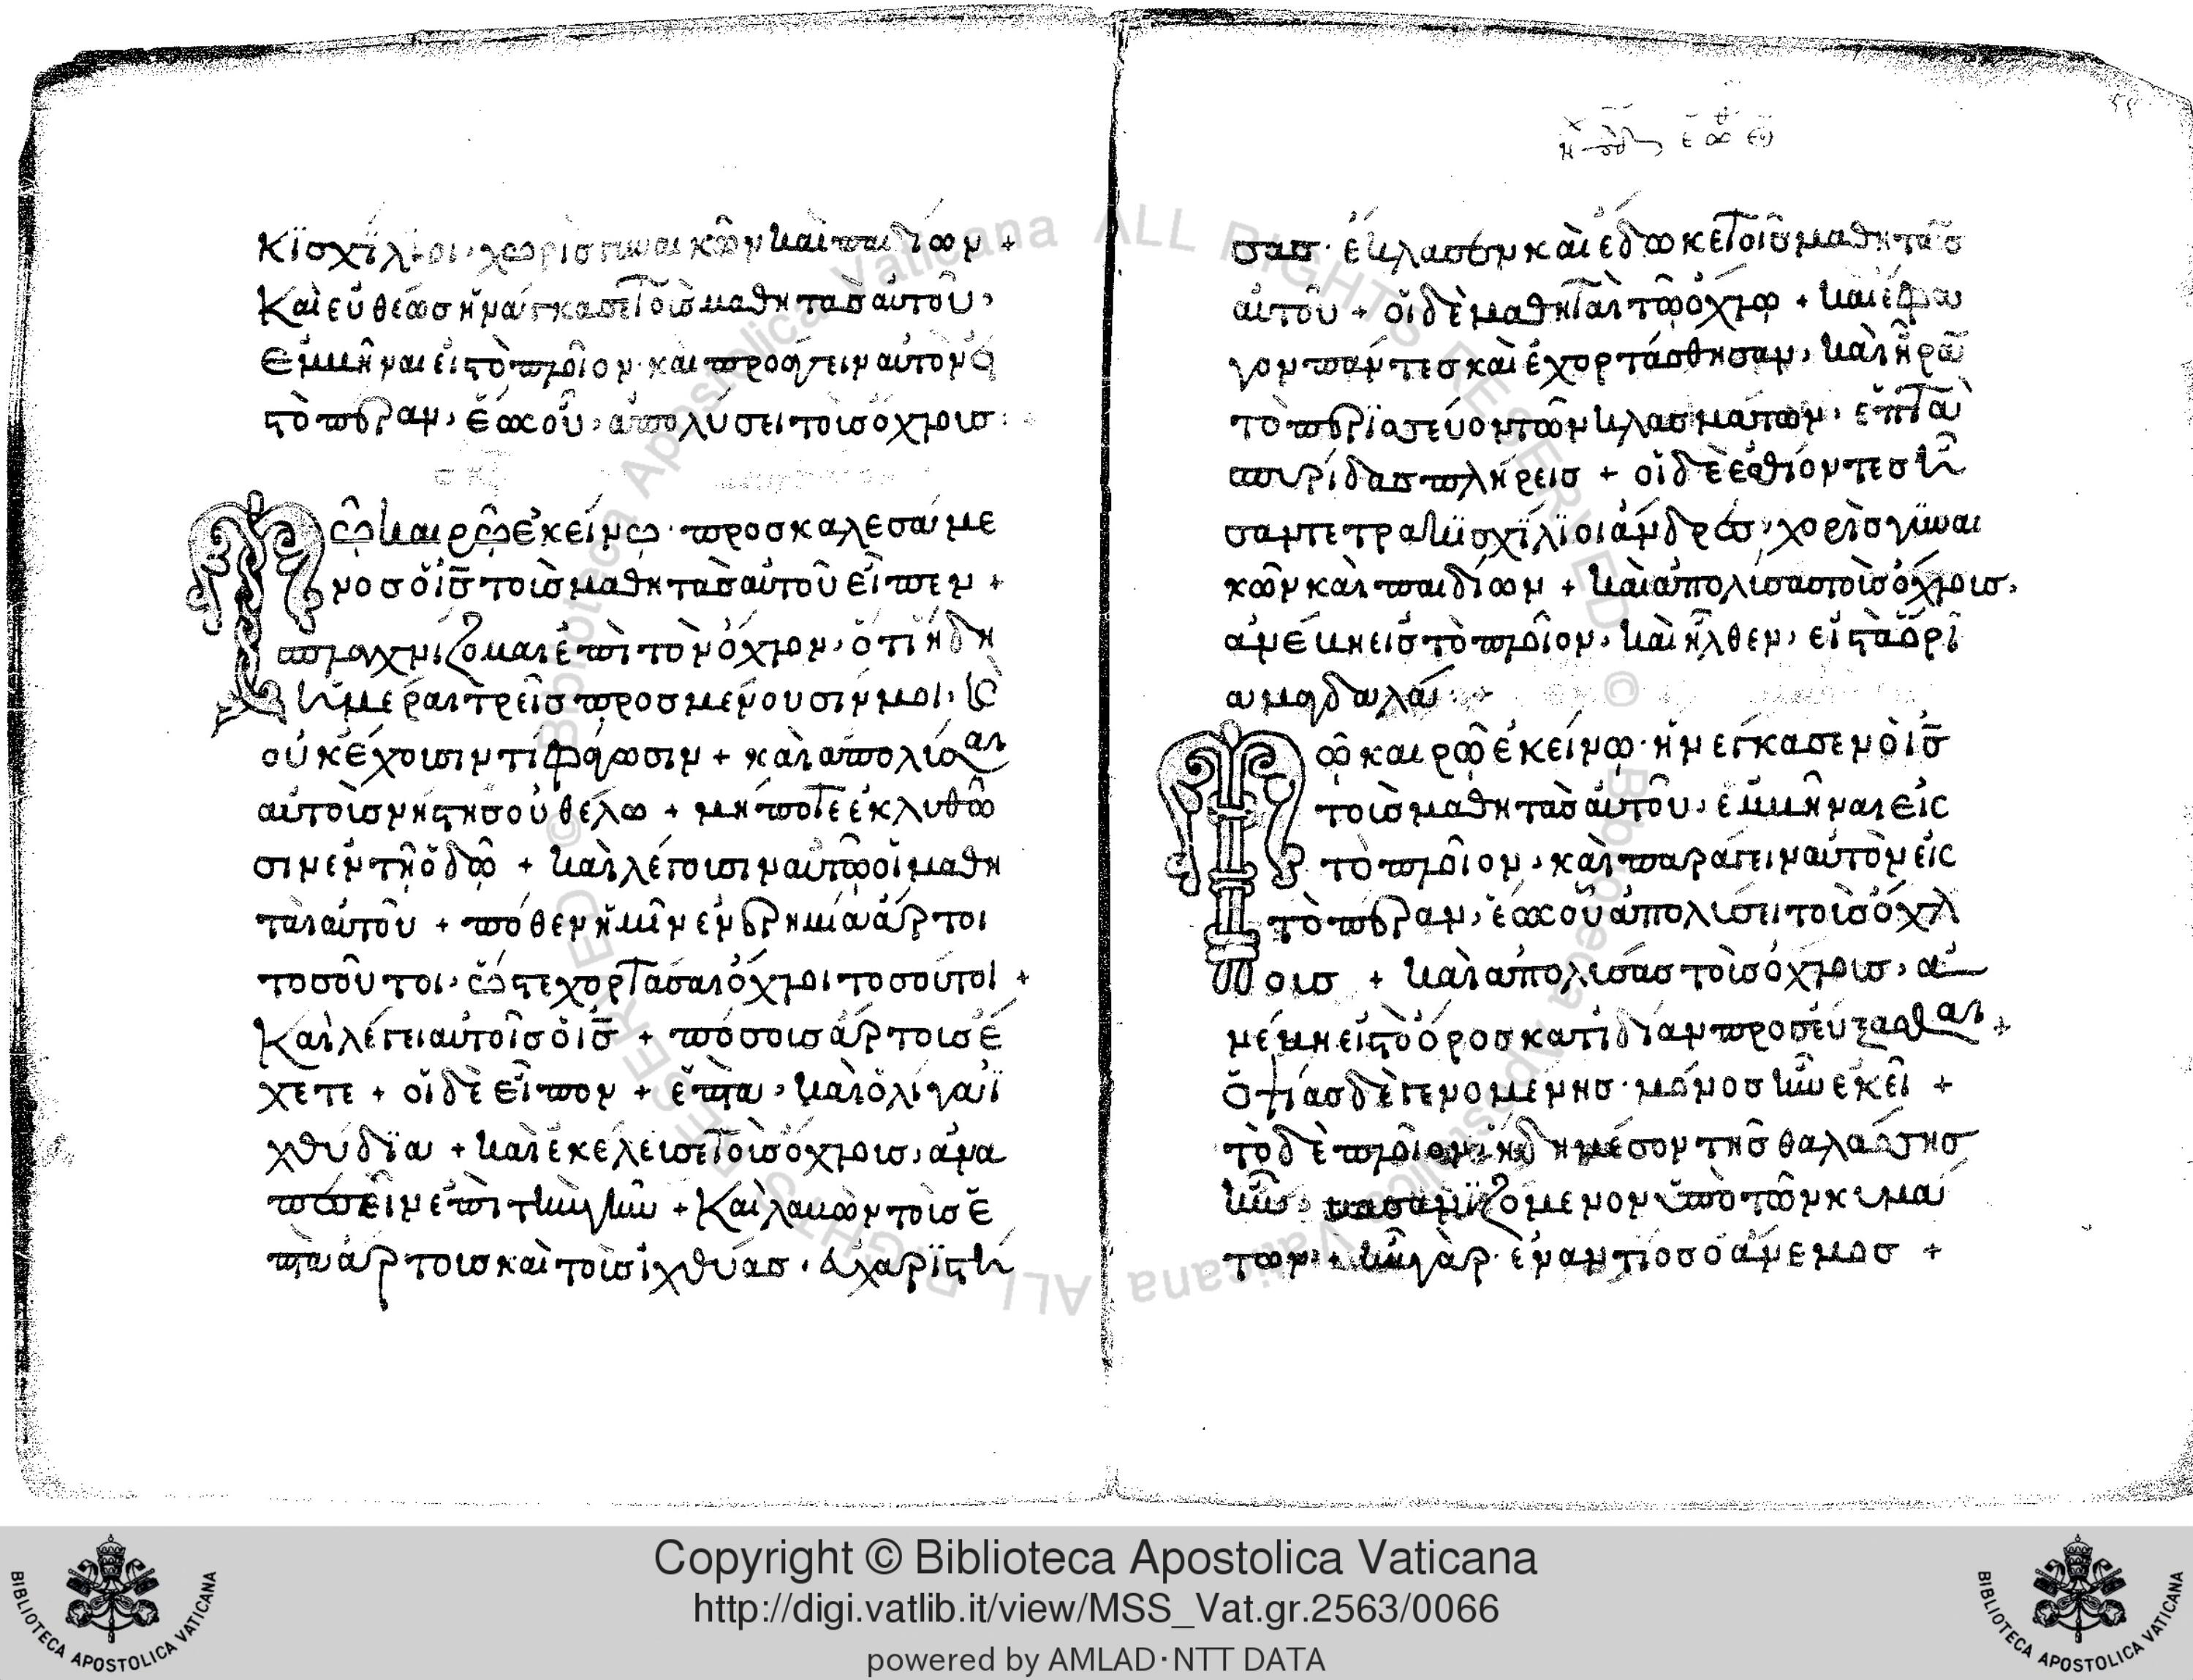 κϊσχϊλιοι· χωρὶσ γυναικῶν καὶ παιδίων +
Καὶ εὐθέωσ ἠνάγκασε τοῖσ μαθητὰσ αὐτοῦ,
ἐμβῆναι εἰς τὸ πλοῖον· καὶ προάγειν αὐτὸν εἰς
τὸ πέραν, ἕωσ οὗ, ἀπολύσει τοῖσ ὄχλοισ:
Τῶ καιρῶ ἐκείνω· προσκαλεσάμε
νοσ ὁ ἰ̅σ̅ τοὶσ μαθητὰσ αὐτοῦ εἶπεν +
σπλαχνίζομαι ἐπὶ τὸν ὄχλον, ὅτι ἤδη
ἡμέραι τρεῖσ προσμένουσίν μοι, κ
οὐκ ἔχοισιν τί φάγωσιν + καὶ ἀπολίσαι
αὐτοὶσ νήστησ οὐ θέλω + μήποτε ἐκλυθῶ
σιν ἐν τῆ ὁδῶ + καὶ λέγοισιν αὐτῶ οἱ μαθη
ταὶ αὐτοῦ + πόθεν ἡμῖν ἐν ἐρημία ἄρτοι
τοσοῦτοι, ὥστε χορτάσαι ὄχλοι τοσούτοι +
Καὶ λέγει αὐτοῖσ ὁ ἰ̅σ̅ + πόσοισ ἄρτοισ ἔ
χετε + οἱ δὲ εἶπον + ἑπτα, καὶ ὀλίγα ἰ̈
χθύδϊα + καὶ ἐκέλεισε τοῖσ ὄχλοισ, ἀνα
πεσεῖν ἐπὶ τὴν γῆν + Καὶ λαβὼν τοὶσ ἑ
πτὰ ἄρτοισ καὶ τοὶσ ἰχθύασ, εὐχαρϊστή
σασ· ἔκλασεν καὶ ἔδωκε τοῖσ μαθηταῖσ
αὐτοῦ + οἱ δὲ μαθηταὶ τῶ ὄχλω + καὶ ἔφα
γον πάντεσ καὶ ἐχορτάσθησαν, καὶ ἦρα
τὸ περϊσεύον τῶν κλασμάτων, ἑπτὰ
σπυρίδασ πλήρεισ + οἱ δὲ ἐσθίοντεσ ἦ
σαν τετρακϊσχϊλϊοι ἄνδρεσ, χορὶσ γϋναι
κῶν καὶ παιδίων + καὶ ἀπολίσασ τοὶσ ὄχλοισ,
ἀνέβη εἰσ τὸ πλοῖον, καὶ ἦλθεν, εἰς τὰ ὅρι
α μαγδαλά:
Τῶ καιρῶ ἐκείνω· ἠνέγκασεν ὁ ἰ̅σ̅
τοὶσ μαθητὰσ αὐτοῦ, ἐμβῆναι εἰς
τὸ πλοῖον, καὶ παράγειν αὐτὸν εἰς
τὸ πέραν, ἕωσ οὗ ἀπολίσει τοὶσ ὄχλ
οισ + καὶ ἀπολισάσ τοὶσ ὄχλοισ, ἀ
νέβη εἰς τὸ ὄροσ κατιδίαν προσεύξασθαι +
ὀψίασ δὲ γενομένησ· μόνοσ ἦν ἐκεῖ +
τὸ δὲ πλοῖον ἤδη μέσον τῆσ θαλάσσησ
ἦν, βασανϊζόμενον ὑπὸ τῶν κυμά
των + ἦν γὰρ· ἐναντίοσ ὁ ἄνεμοσ +
Copyright © Biblioteca Apostolica Vaticana
http://digi.vatlib.it/view/MSS_Vat.gr.2563/0066
powered by AMLAD·NTT DATA
BIBLIOTECA APOSTOLICA VATICANA
BIBLIOTECA APOSTOLICA VATICANA